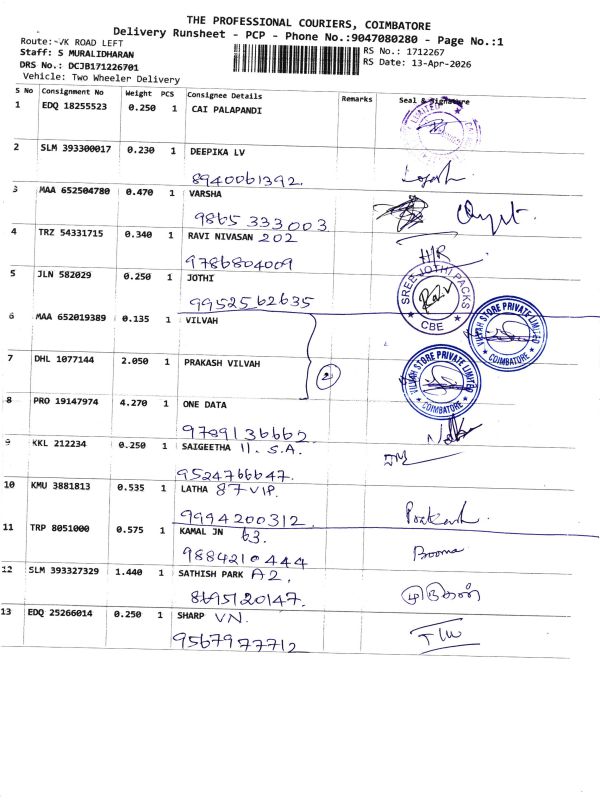 THE PROFESSIONAL COURIERS, COIMBATORE
Delivery Runsheet - PCP - Phone No.:9047080280 - Page No.:1
Route:-VK ROAD LEFT
Staff: S MURALIDHARAN
DRS No.: DCJB171226701
Vehicle: Two Wheeler Delivery
RS No.: 1712267
RS Date: 13-Apr-2026
S No Consignment No Weight PCS Consignee Details Remarks Seal & Signature
1 EDQ 18255523 0.250 1 CAI PALAPANDI
2 SLM 393300017 0.230 1 DEEPIKA LV
8940061392.
3 MAA 652504780 0.470 1 VARSHA
9865 333003
4 TRZ 54331715 0.340 1 RAVI NIVASAN 202
9786804009
H/R
5 JLN 582029 0.250 1 JOTHI
9952562635
SREE JOTHI PACKS
CBE
6 MAA 652019389 0.135 1 VILVAH
VILVAH STORE PRIVATE LIMITED
COIMBATORE
7 DHL 1077144 2.050 1 PRAKASH VILVAH
2
VILVAH STORE PRIVATE LIMITED
COIMBATORE
8 PRO 19147974 4.270 1 ONE DATA
9789136662.
9 KKL 212234 0.250 1 SAIGEETHA 11. S.A.
9524766647.
10 KMU 3881813 0.535 1 LATHA 87 VIP.
9994200312
Prakash.
11 TRP 8051000 0.575 1 KAMAL JN 63.
9884210444
Booma
12 SLM 393327329 1.440 1 SATHISH PARK A2,
8695120147.
முருகேசன்
13 EDQ 25266014 0.250 1 SHARP VN.
9567977712